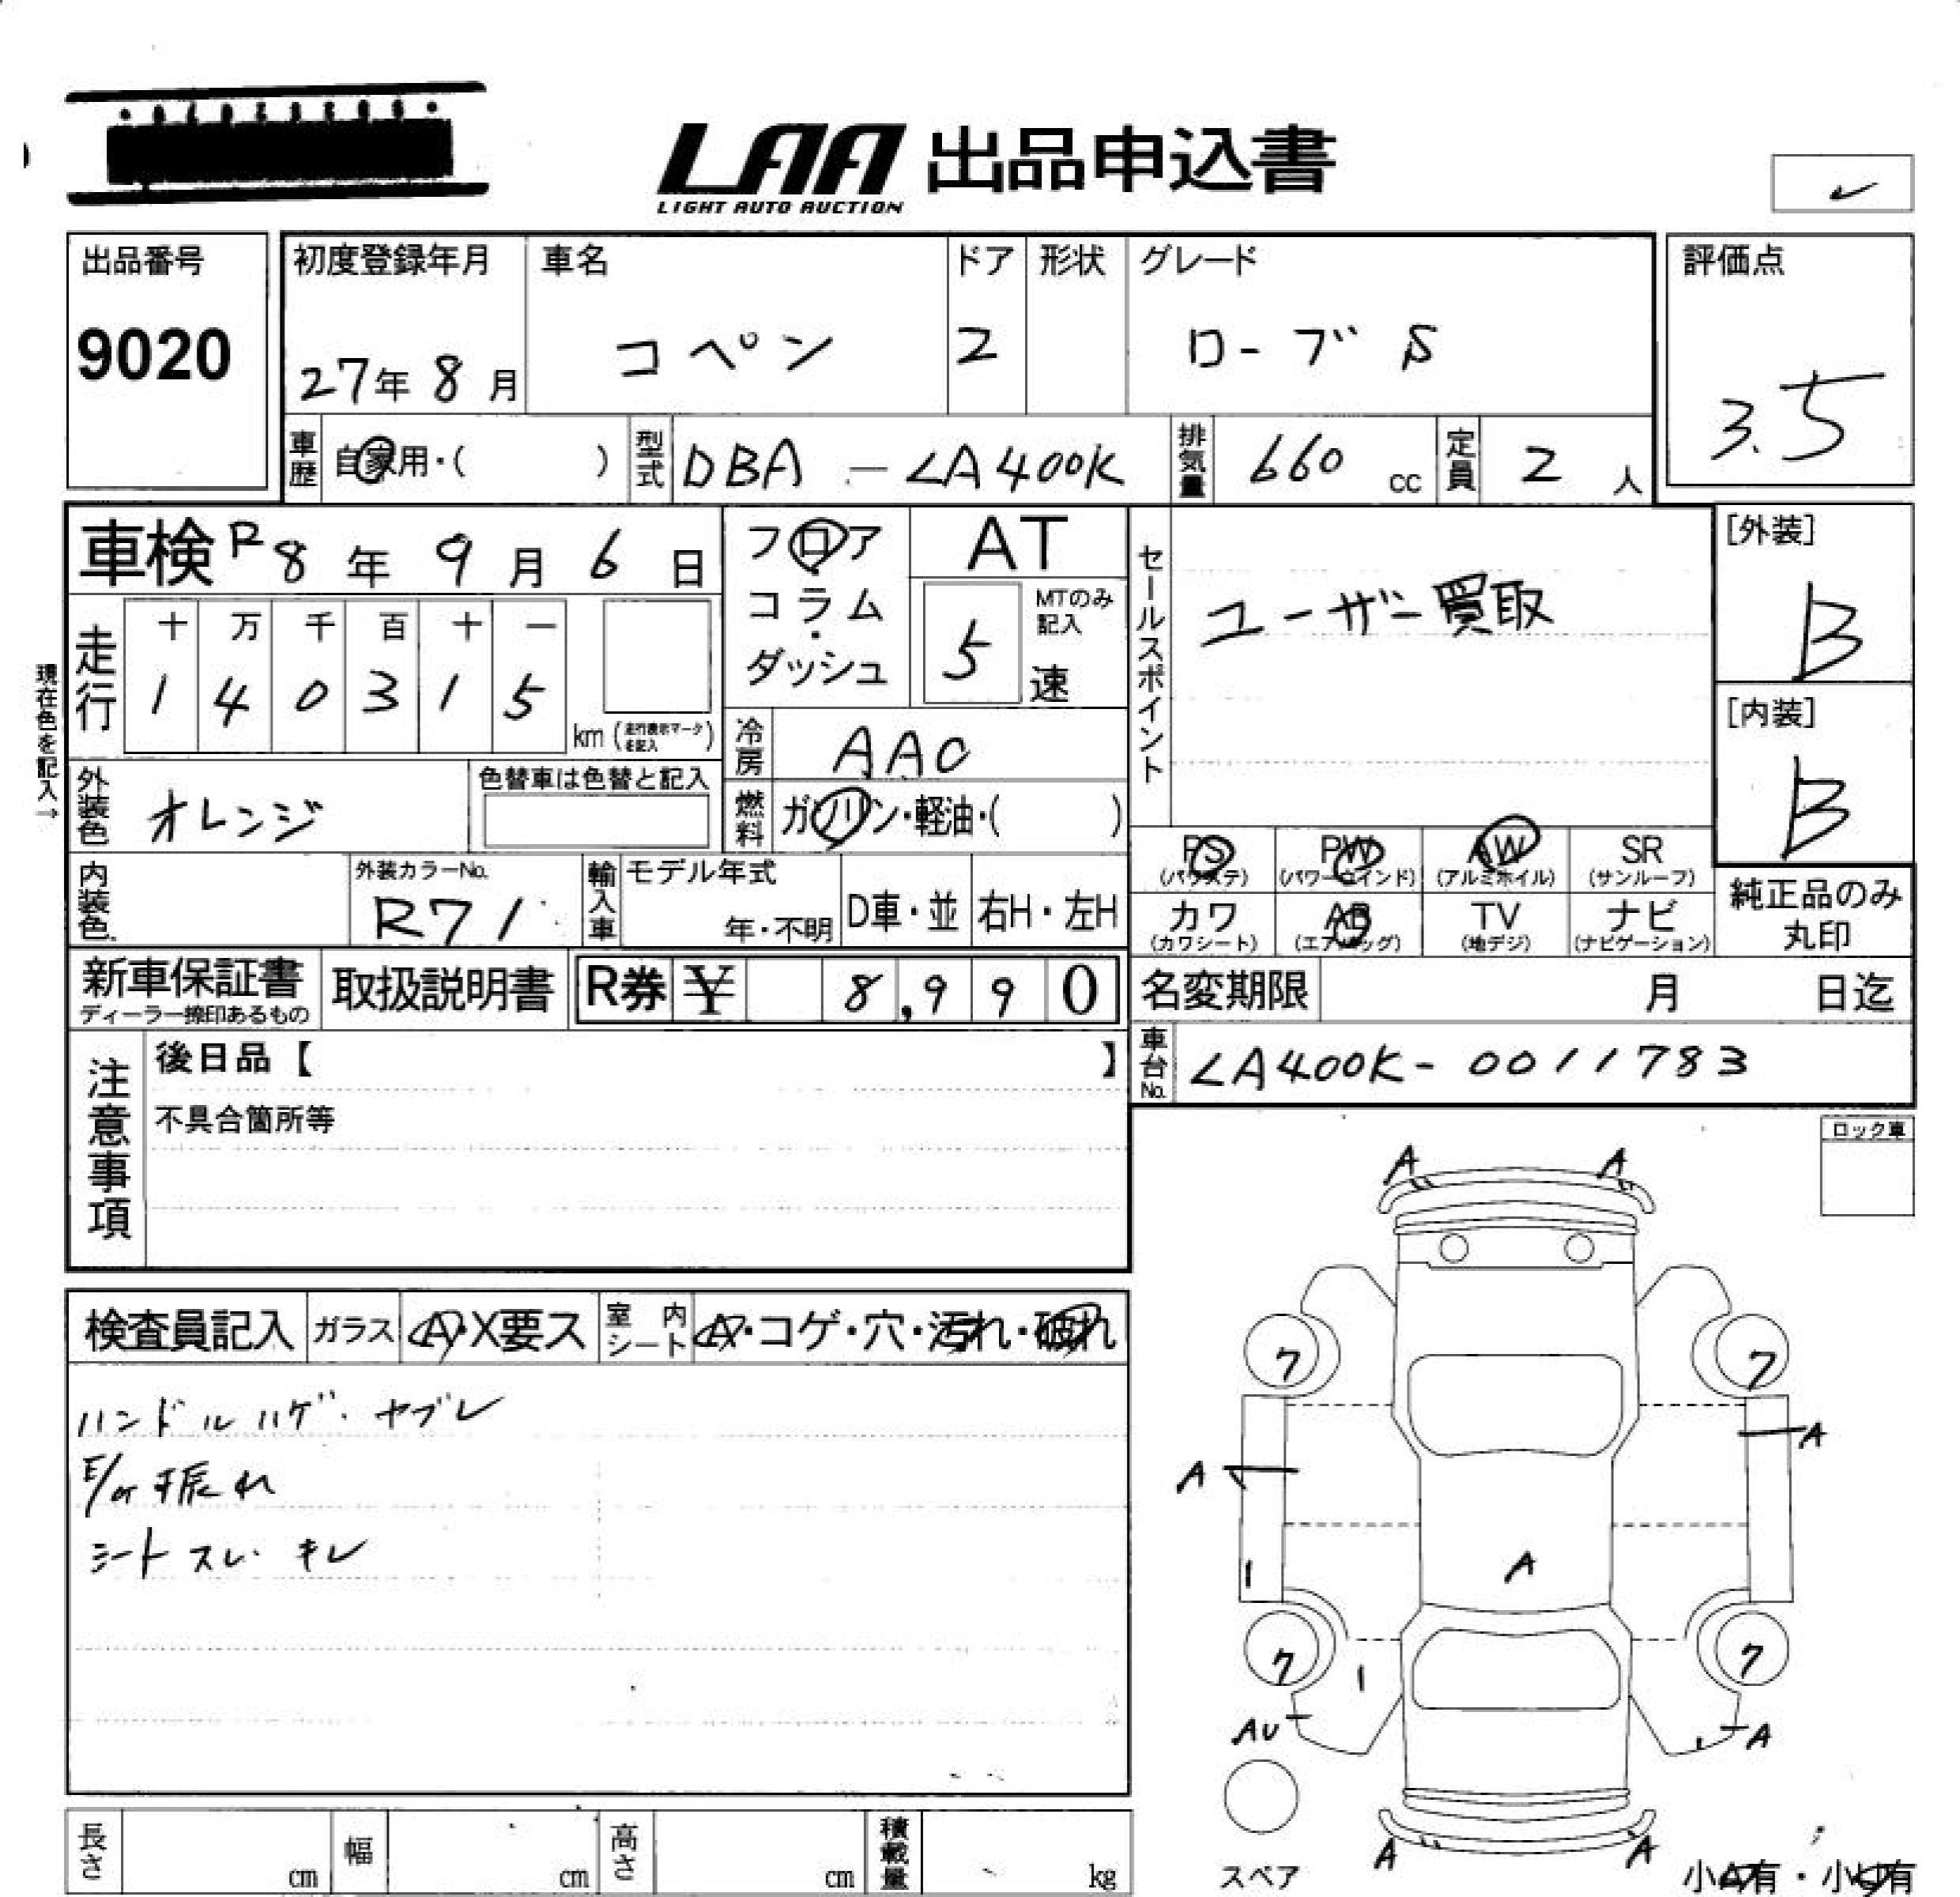 LAA 出品申込書
LIGHT AUTO AUCTION
出品番号
9020
初度登録年月
27年 8月
車名
コペン
ドア
2
形状
グレード
ローブ S
評価点
3.5
車歴
自家用・( )
型式
DBA - LA400K
排気量
660 cc
定員
2 人
車検 R8年 9月 6日
フロア・コラム・ダッシュ
AT
5 速
MTのみ記入
セールスポイント
ユーザー買取
[外装]
B
[内装]
B
現在色を記入→
走行
十 万 千 百 十 一
1 4 0 3 1 5
km (走行表示マークを記入)
冷房
AAC
燃料
ガソリン・軽油・( )
外装色
オレンジ
色替車は色替と記入
内装色
外装カラーNo.
R71
輸入車
モデル年式
年・不明
D車・並
右H・左H
PS (パワステ)
PW (パワーウインド)
AW (アルミホイル)
SR (サンルーフ)
カワ (カワシート)
AB (エアバッグ)
TV (地デジ)
ナビ (ナビゲーション)
純正品のみ丸印
新車保証書
ディーラー捺印あるもの
取扱説明書
R券 ¥ 8,990
名変期限 月 日迄
車台No.
LA400K- 0011783
注意事項
後日品【 】
不具合箇所等
ロック車
検査員記入
ガラス
A・X要ス
室内シート
A・コゲ・穴・汚れ・破れ
ハンドルハゲ・ヤブレ
E/G振れ
シートスレ・キレ
A A
7 7
A A
1 A
7 7
1
AU A
A A
スペア
小A有・小U有
長さ cm
幅 cm
高さ cm
積載量 kg